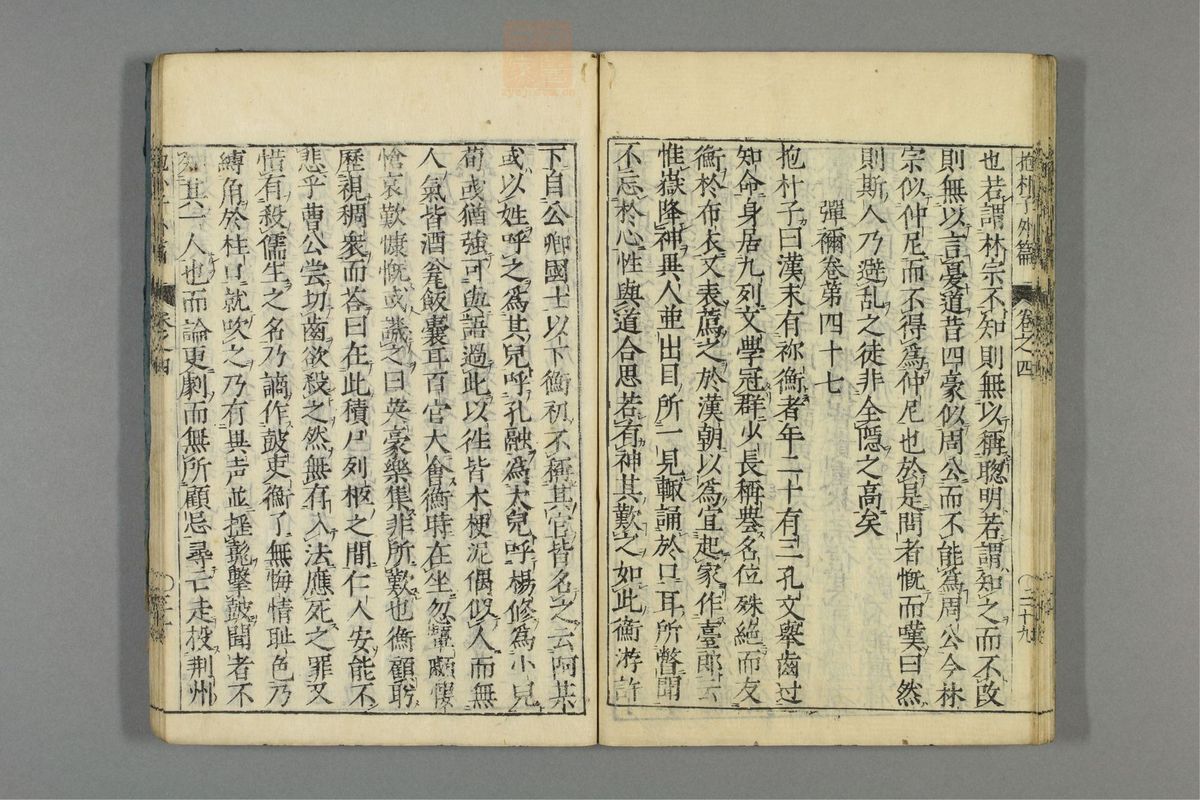 抱朴子外篇 卷之四 〇二十九
也若謂林宗不知則無以稱聰明若謂知之而不改
則無以言憂道昔四豪似周公而不能爲周公今林
宗似仲尼而不得爲仲尼也於是問者慨而嘆曰然
則斯人乃避乱之徒非全隱之高矣
彈禰卷第四十七
抱朴子曰漢末有祢衡者年二十有三孔文舉齒过
知命身居九列文學冠群少長稱譽名位殊絕而友
衡於布衣又表薦之於漢朝以為宜起家作臺郎云
惟嶽降神異人並出目所一見輙誦於口耳所瞥聞
不忘於心性與道合思若有神其歎之如此衡游許
下自公卿國士以下衡初不稱其官皆名之云阿某
或以姓呼之爲某兒呼孔融為大兒呼楊修為小兒
荀彧猶強可與語過此以徃皆木梗泥偶似人而無
人氣皆酒瓮飯囊耳百官大會衡時在坐忽顰顣悽
愴哀歎慷慨或譏之曰英豪樂集非所歎也衡顧眄
歷視稠衆而荅曰在此積尸列柩之間仁人安能不
悲乎曹公嘗切齒欲殺之然無有入法應死之罪又
惜有殺儒生之名乃謫作鼓吏衡了無悔情耻色乃
縛角於柱口就吹之乃有異声並揺鼗擊鼓聞者不
知其一人也而論更劇而無所顧忌尋亡走投荆州